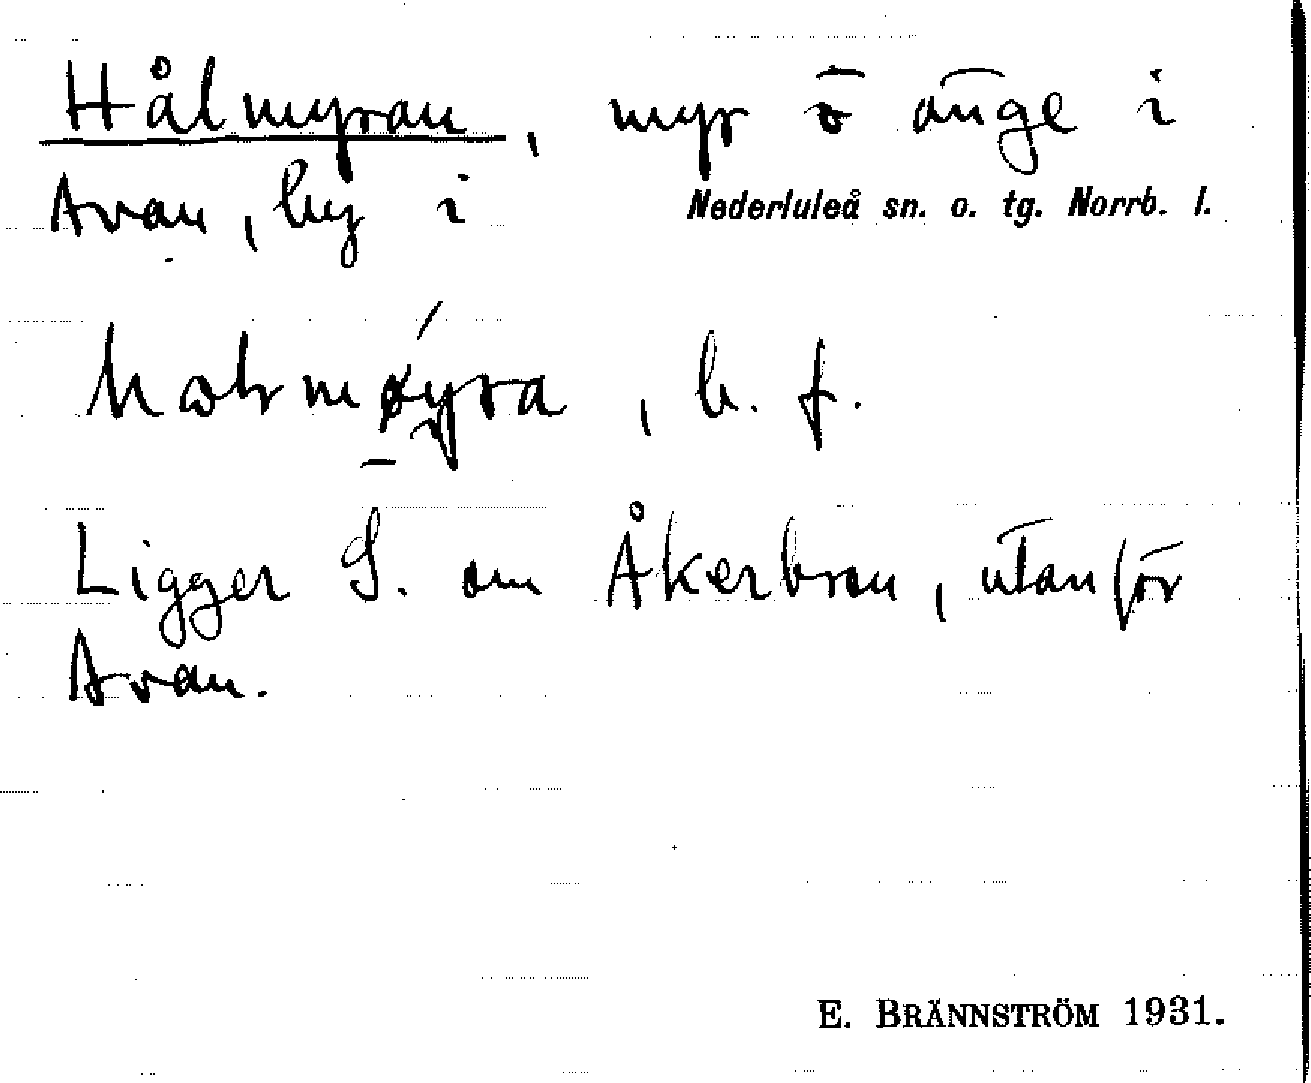 Hålmyran, myr ö änge i
Avan, by i Nederluleå sn. o. tg. Norrb. l.
b. f.
Ligger S. om Åkerbran, utanför
Avan.
E. BRÄNNSTRÖM 1931.